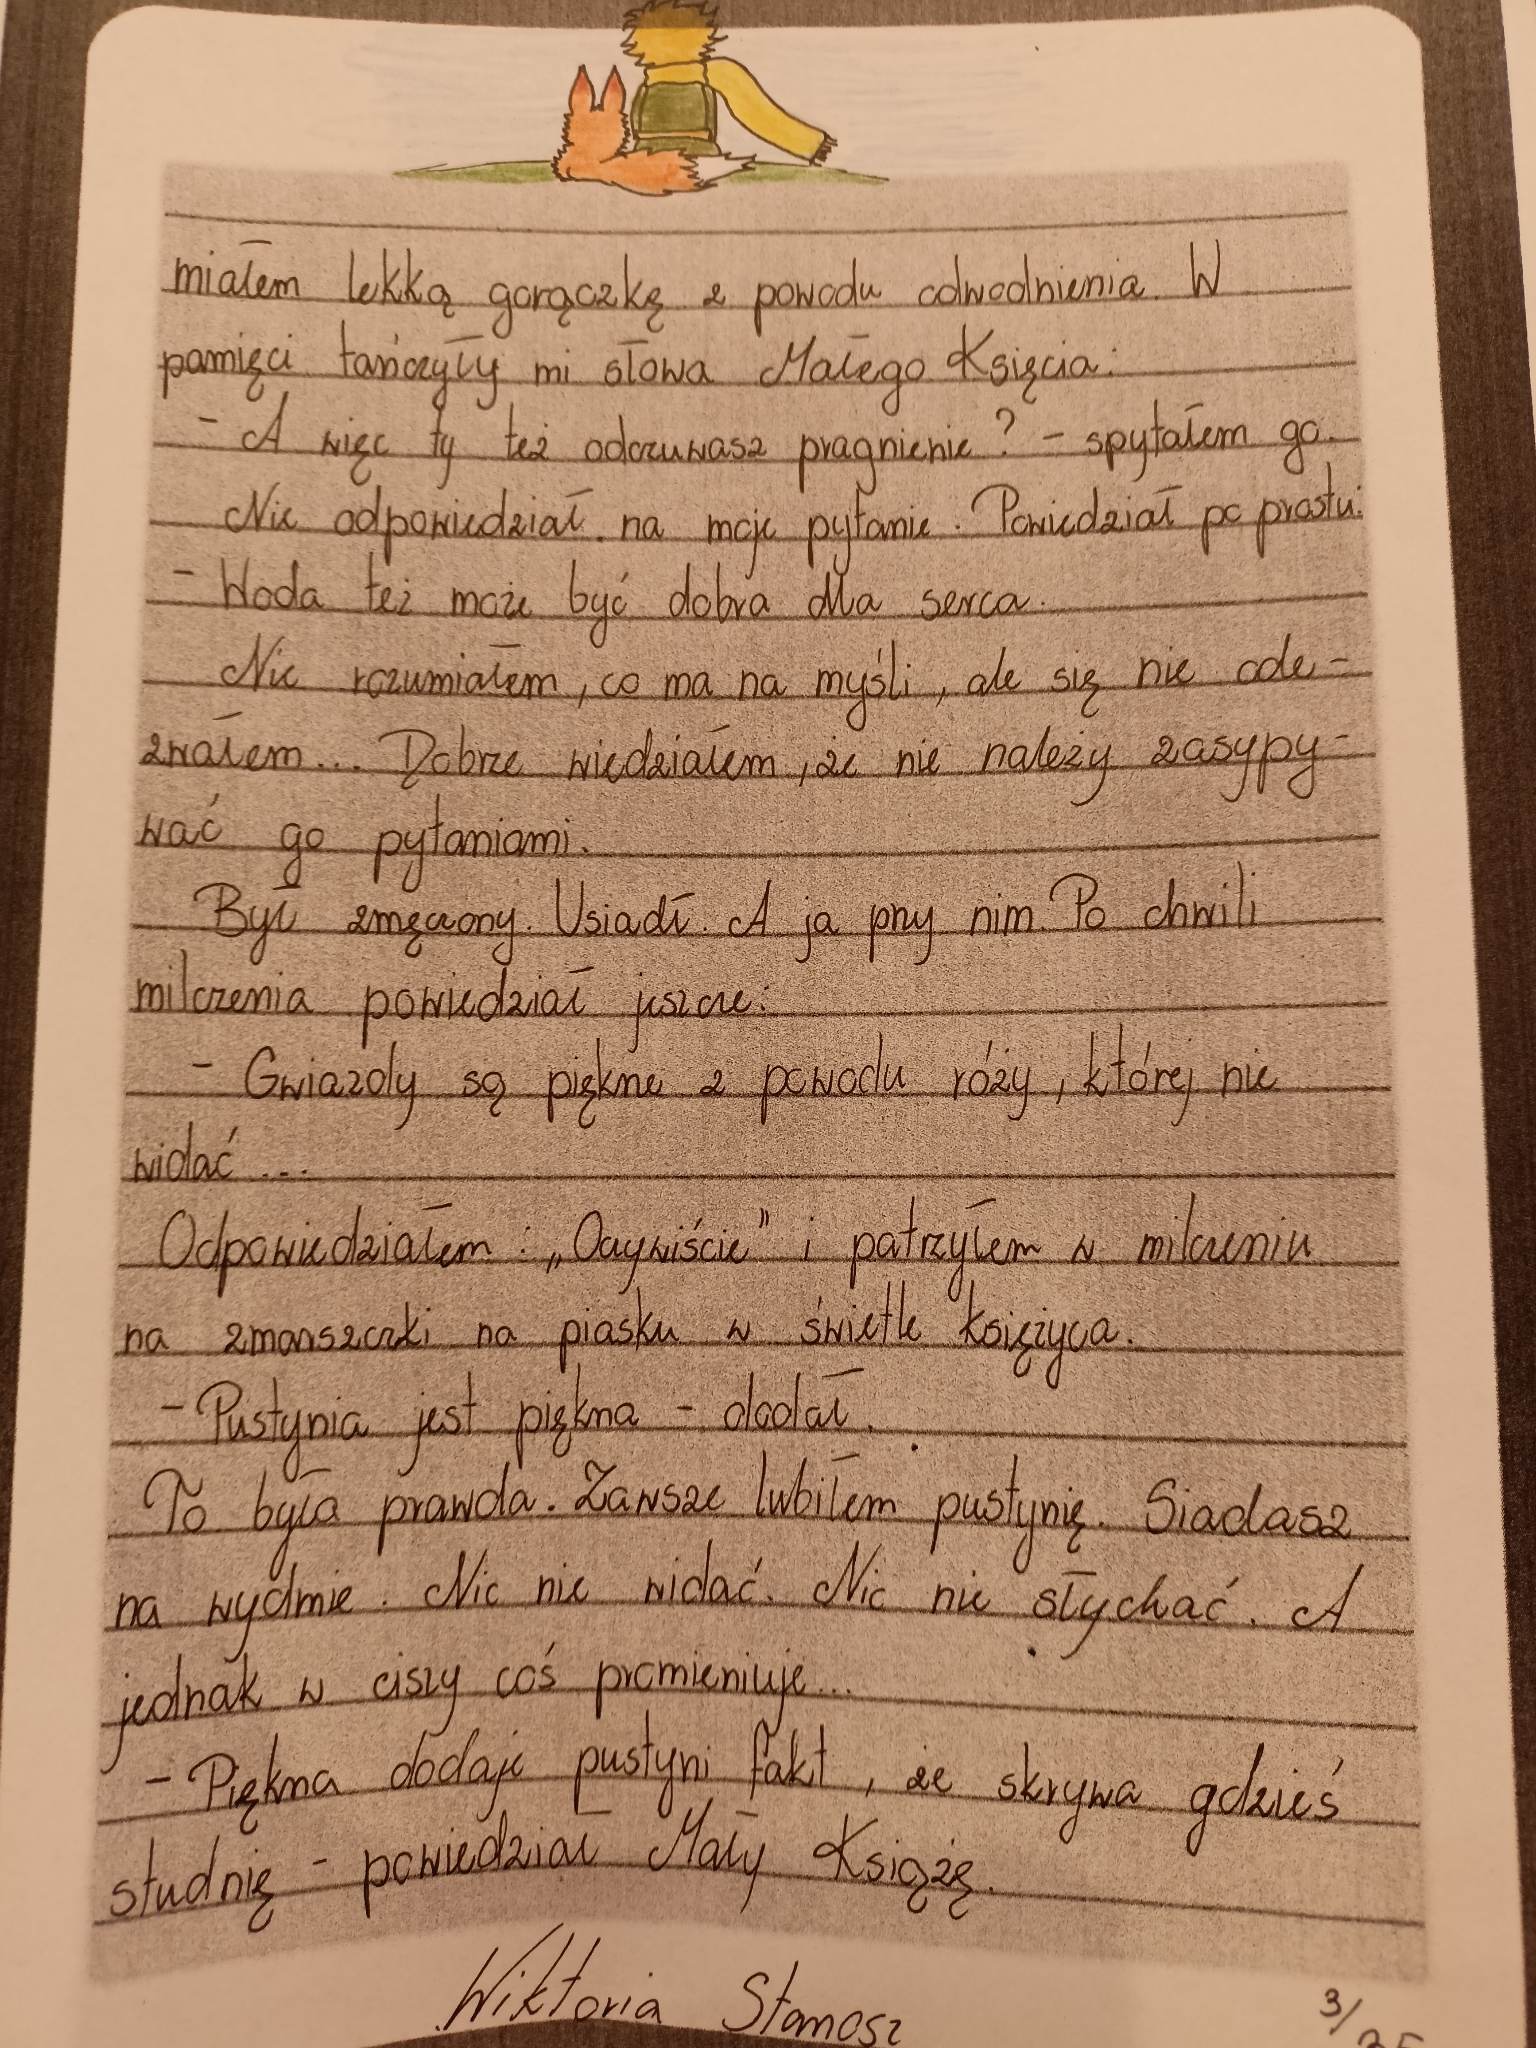 miałem lekką gorączkę z powodu odwodnienia. W
pamięci tańczyły mi słowa Małego Księcia:
- A więc ty też odczuwasz pragnienie? - spytałem go.
Nie odpowiedział na moje pytanie. Powiedział po prostu:
- Woda też może być dobra dla serca.
Nie rozumiałem, co ma na myśli, ale się nie ode-
zwałem... Dobrze wiedziałem, że nie należy zasypy-
wać go pytaniami.
Był zmęczony. Usiadł. A ja przy nim. Po chwili
milczenia powiedział jeszcze:
- Gwiazdy są piękne z powodu róży, której nie
widać...
Odpowiedziałem: „Oczywiście” i patrzyłem w milczeniu
na zmarszczki na piasku w świetle księżyca.
- Pustynia jest piękna - dodał.
To była prawda. Zawsze lubiłem pustynię. Siadasz
na wydmie. Nic nie widać. Nic nie słychać. A
jednak w ciszy coś promieniuje...
- Piękna dodaje pustyni fakt, że skrywa gdzieś
studnię - powiedział Mały Książę.
Wiktoria Stanosz
3/